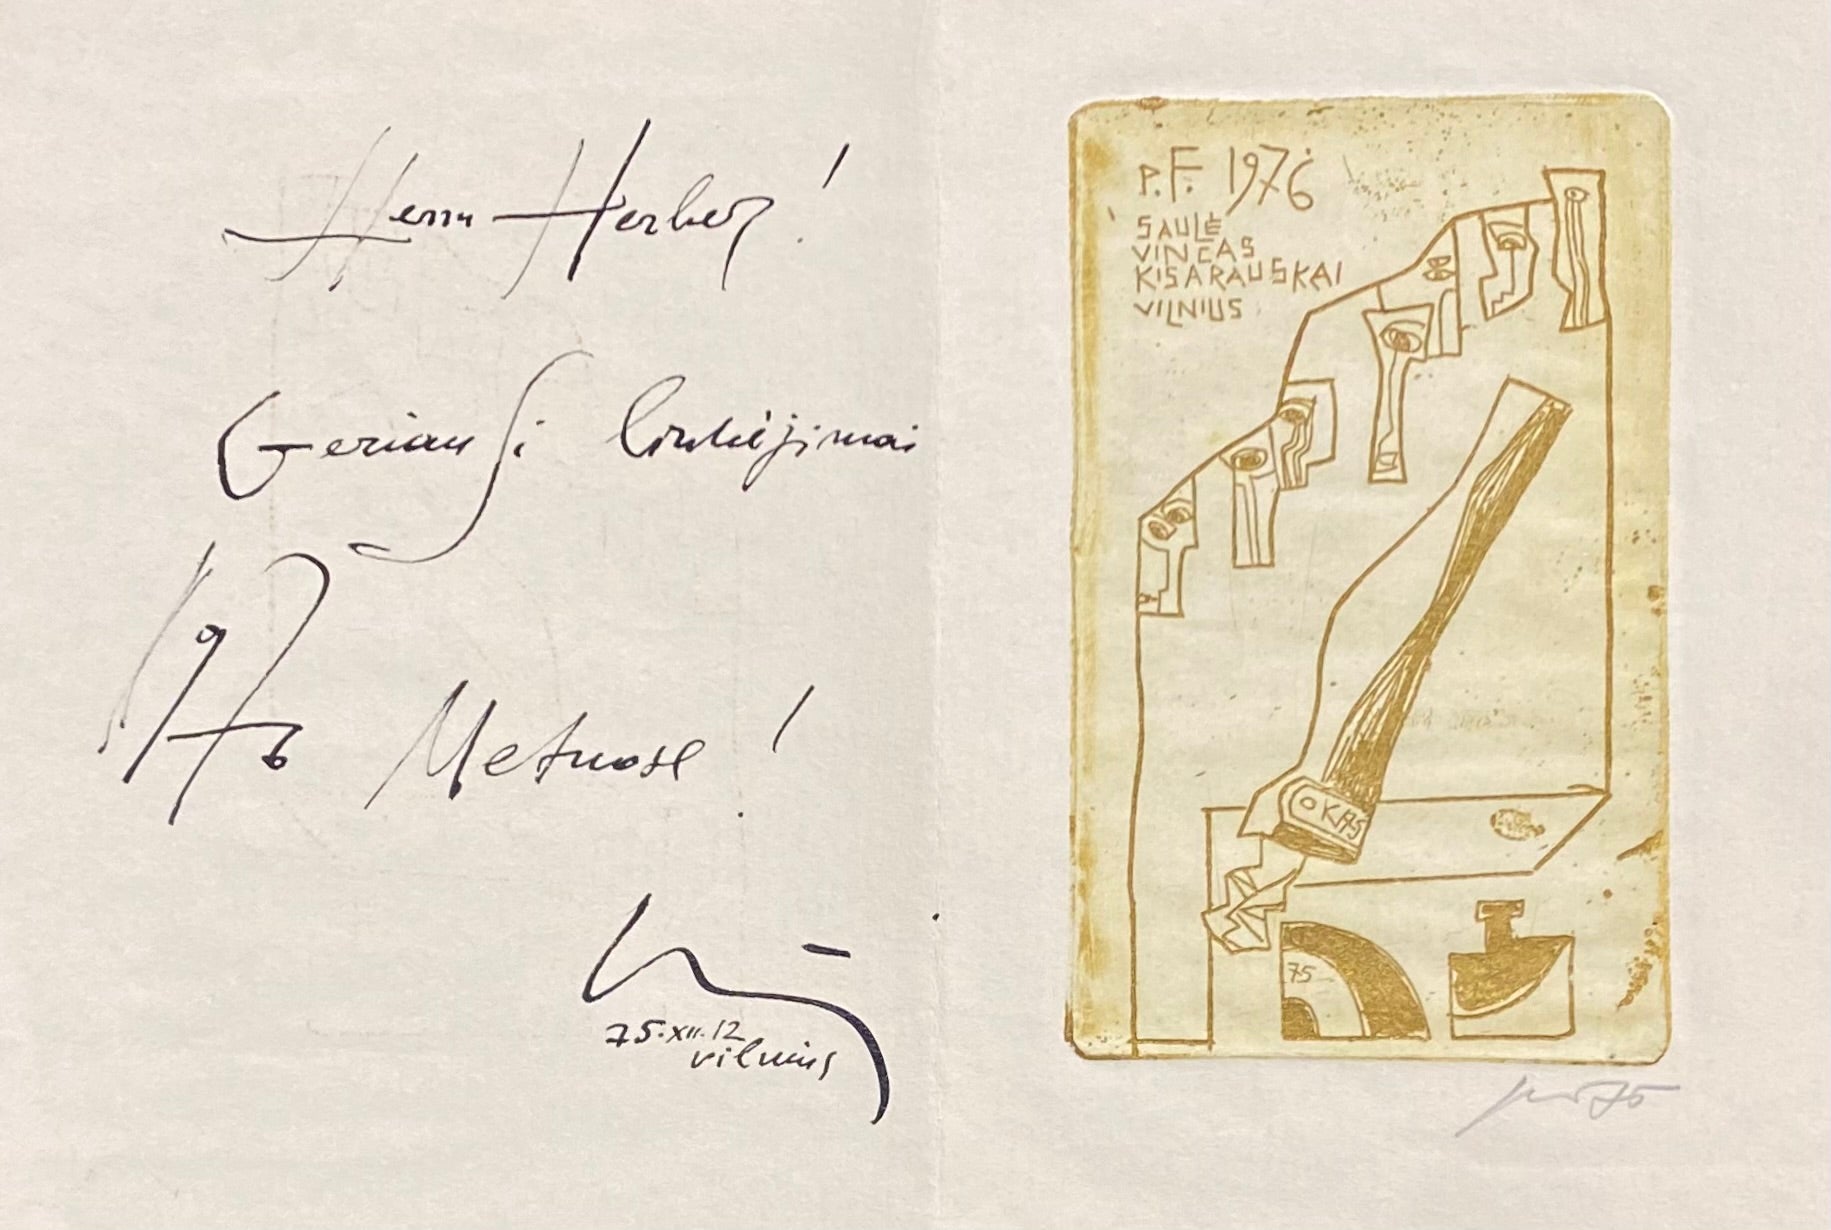 Herrn Herbez!
Geriausi linkėjimai
1976 Metuose!
75.XII.12
Vilnius
P.F. 1976
SAULĖ
VINCAS
KISARAUSKAI
VILNIUS
OKAS
75
75